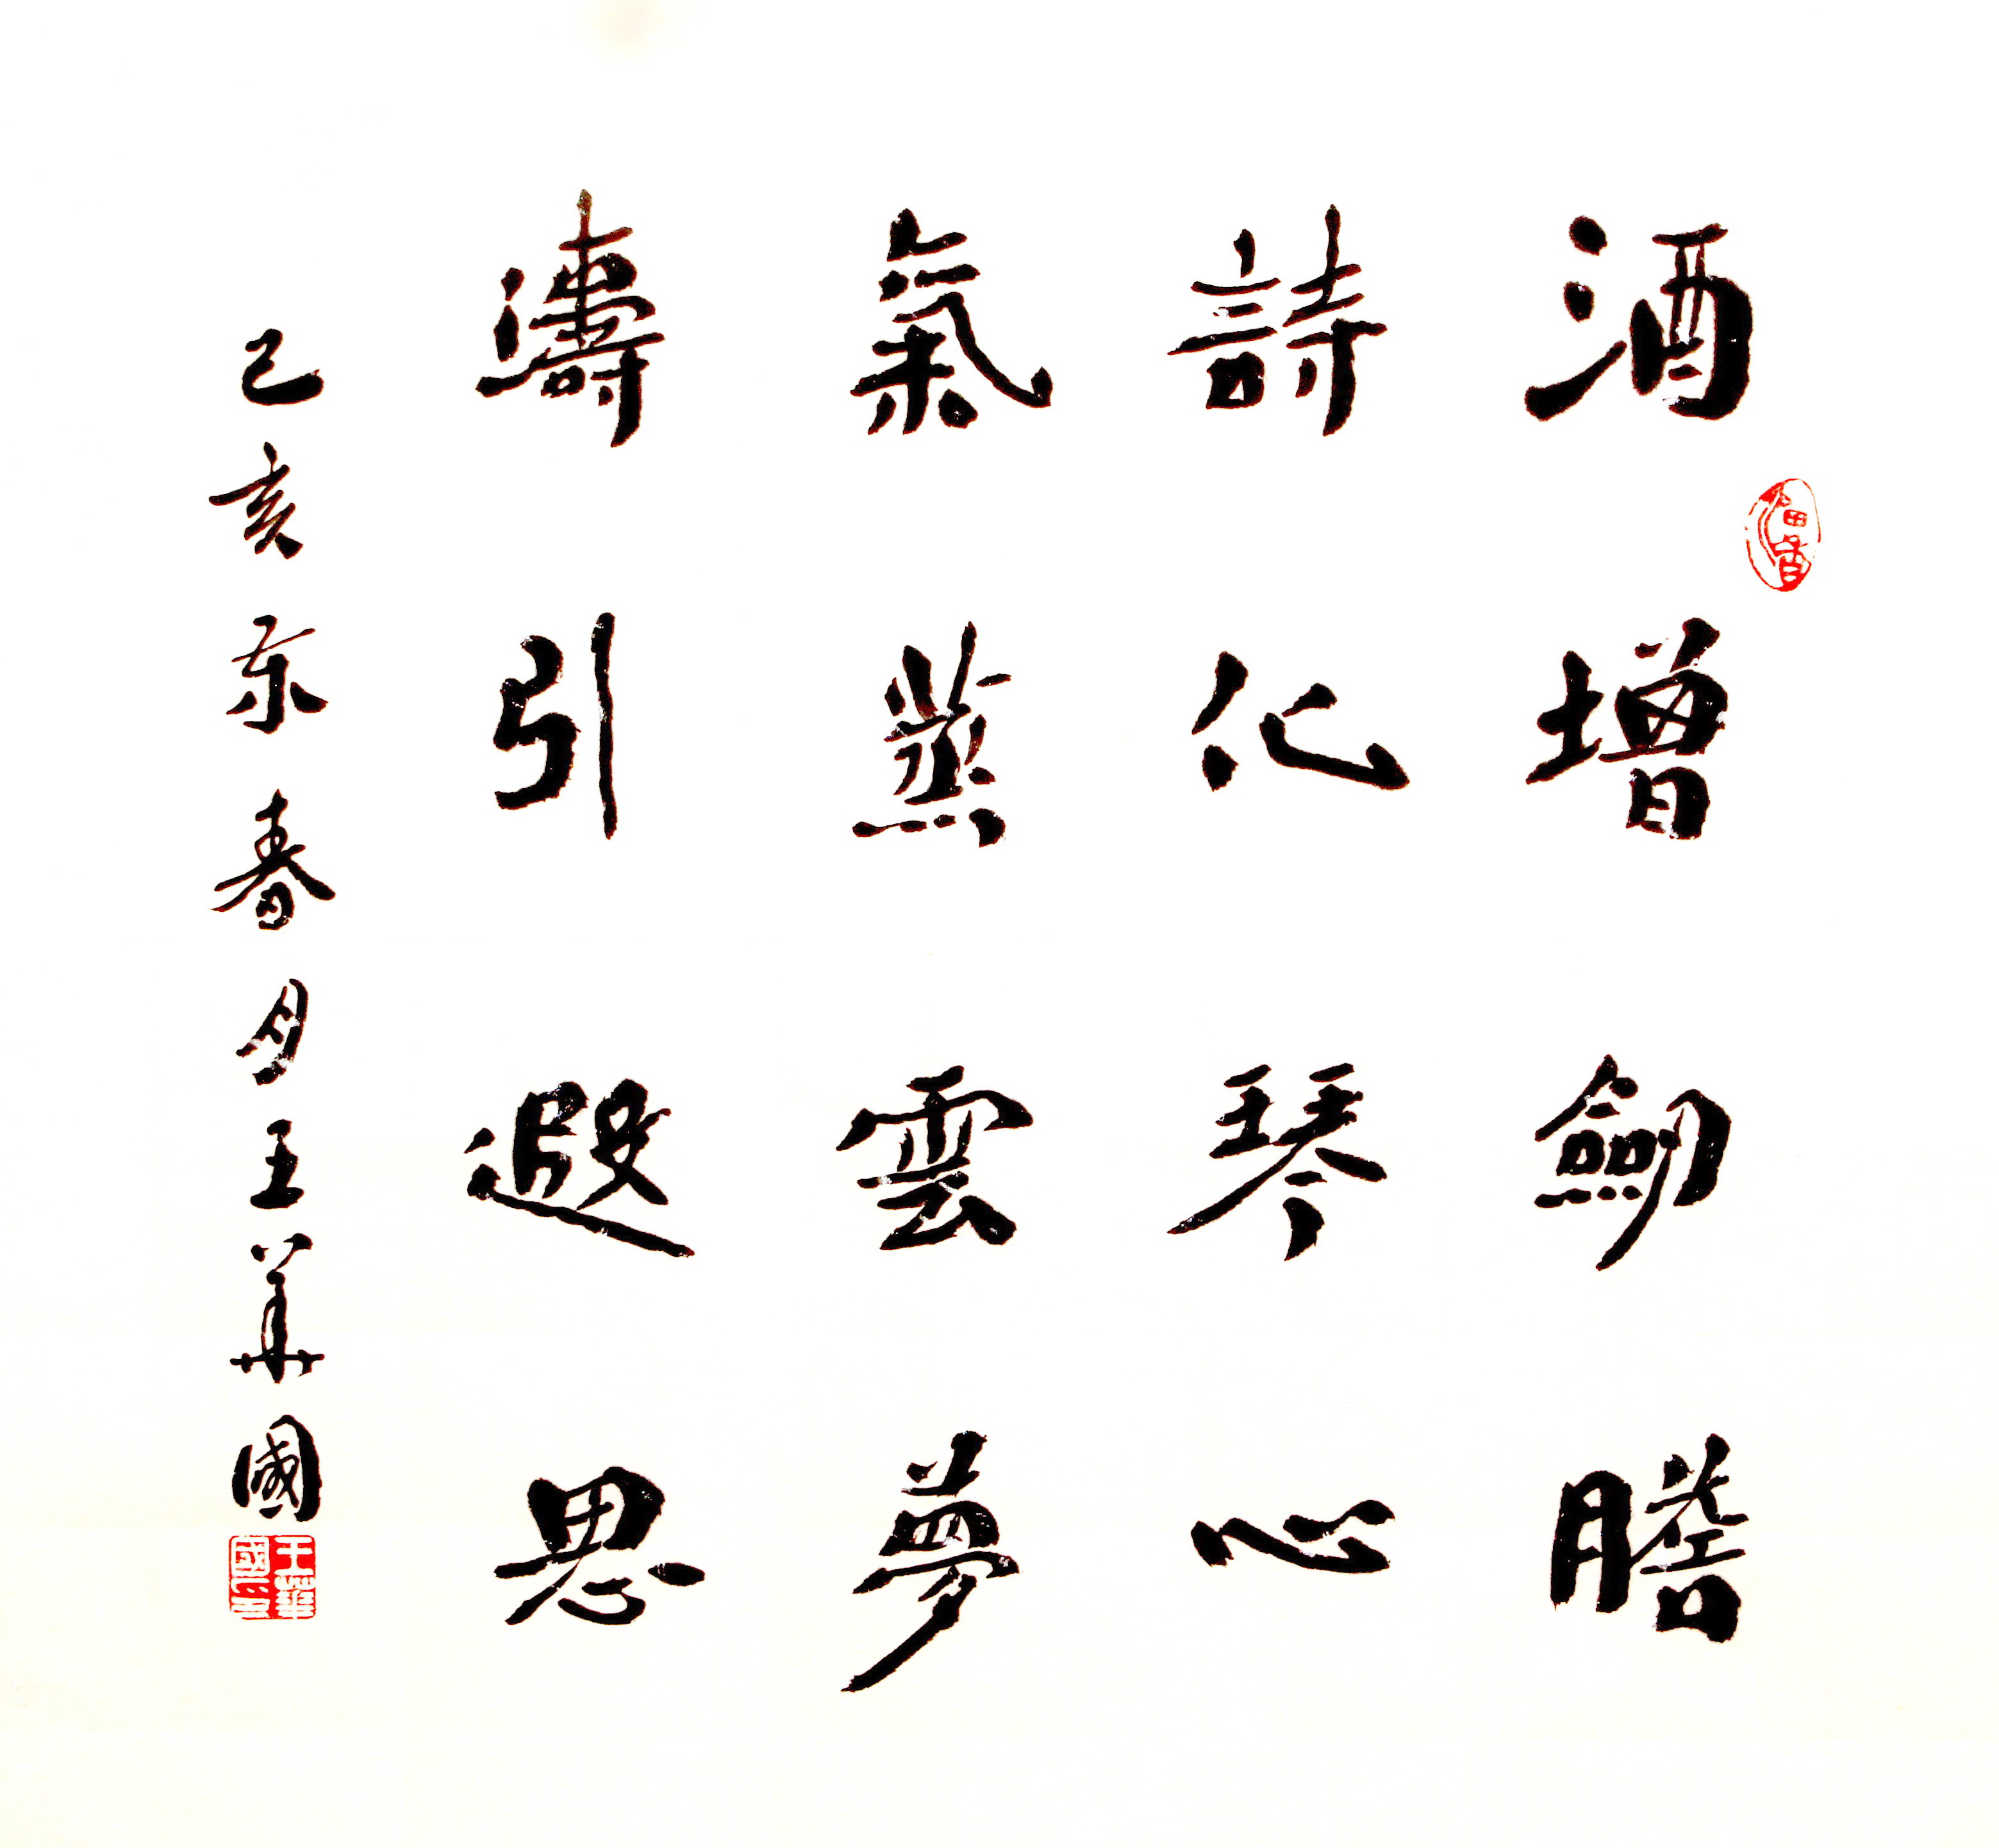 酒增劍膽
詩化琴心
氣蒸雲夢
濤引遐思
己亥年春月王華國
王華國印